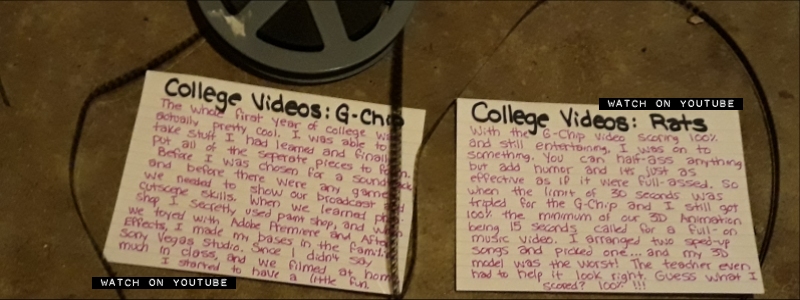 College Videos: G-Chip
The whole first year of college was
actually pretty cool. I was able to
take stuff I had learned and finally
put all of the seperate pieces to form.
Before I was chosen for a soundtrack
and before there were any games
we needed to show our broadcast and
cutscene skills. When we learned photo
shop I secretly used paint shop, and when
we toyed with Adobe Premiere and After
Effects, I made my bases in the familiar
Sony Vegas Studio. Since I didn't say
much in class, and we filmed at home
I started to have a little fun.
WATCH ON YOUTUBE
WATCH ON YOUTUBE
College Videos: Rats
With the G-Chip video scoring 100%
and still entertaining, I was on to
something. You can half-ass anything
but add humor and its just as
effective as if it were full-assed. So
when the limit of 30 seconds was
tripled for the G-Chip and I still got
100% the minimum of our 3D Animation
being 15 seconds called for a full-on
music video. I arranged two sped-up
songs and picked one... and my 3D
model was the worst! The teacher even
had to help it look right. Guess what I
scored? 100% !!!